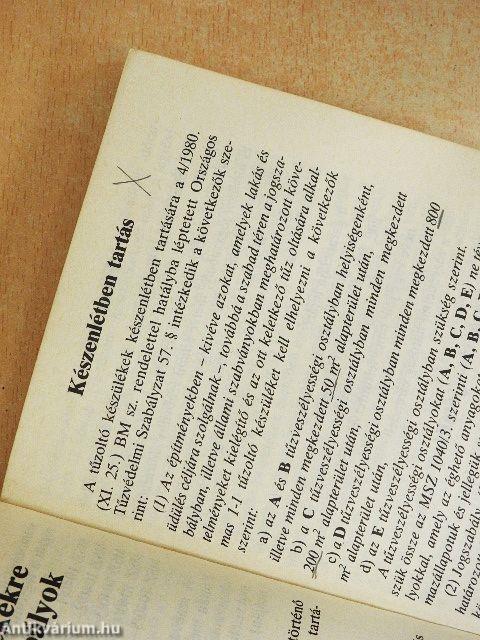 Készenlétben tartás
A tűzoltó készülékek készenlétben tartására a 4/1980.
(XI. 25.) BM sz. rendelettel hatályba léptetett Országos
Tűzvédelmi Szabályzat 57. § intézkedik a következők sze-
rint:
(1) Az építményekben – kivéve azokat, amelyek lakás és
üdülés céljára szolgálnak –, továbbá a szabad téren a jogsza-
bályban, illetve állami szabványokban meghatározott köve-
telményeket kielégítő és az ott keletkező tűz oltására alkal-
mas 1-1 tűzoltó készüléket kell elhelyezni a következők
szerint:
a) az A és B tűzveszélyességi osztályban helyiségenként,
illetve minden megkezdett 50 m² alapterület után,
b) a C tűzveszélyességi osztályban minden megkezdett
200 m² alapterület után,
c) a D tűzveszélyességi osztályban minden megkezdett 800
m² alapterület után,
d) az E tűzveszélyességi osztályban szükség szerint.
A tűzveszélyességi osztályokat (A, B, C, D, E) ne
szük össze az MSZ 1040/3. szerinti (A, B, C,
lyokkal, amely az éghető anyagoka
mazállapotuk és jellegük
határozon
(2) Jogszabály
ekre
lyok
történő
tartá-
Antikvarium.hu